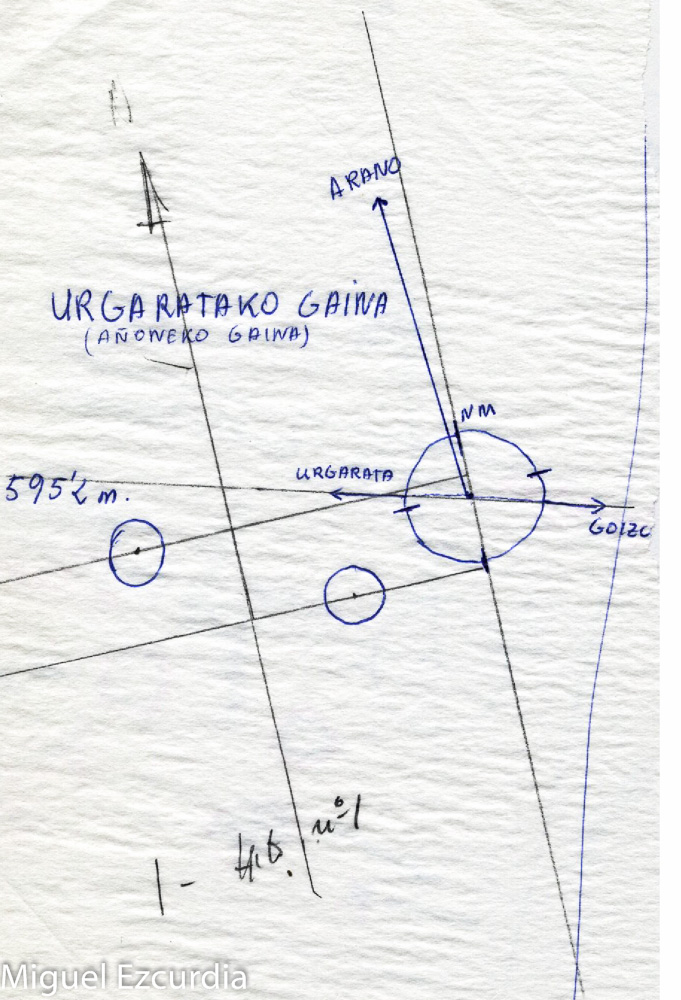 ARANO
URGARATAKO GAINA
(AÑONEKO GAINA)
NM
URGARATA
595'2 m.
GOIZU
1 - nº 1
Miguel Ezcurdia